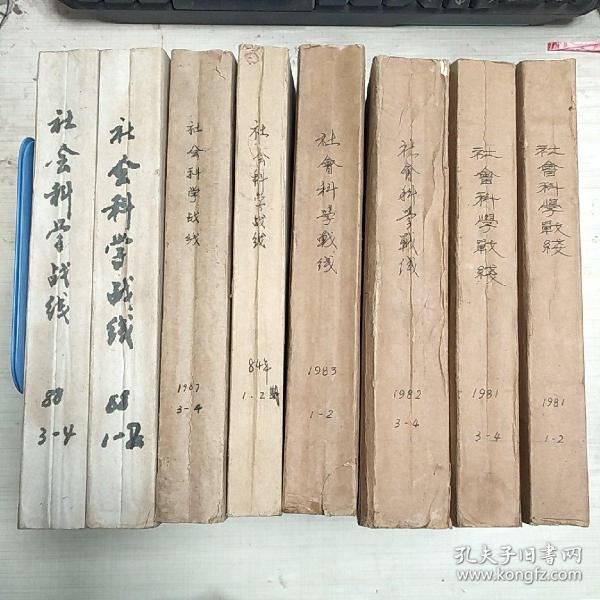 社会科学战线
88
3-4
社会科学战线
88
1-2
社会科学战线
1987
3-4
社会科学战线
84年
1.2
社會科学戰线
1983
1-2
社會科学戰线
1982
3-4
社會科學戰綫
1981
3-4
社會科學戰綫
1981
1-2
孔夫子旧书网
www.kongfz.com